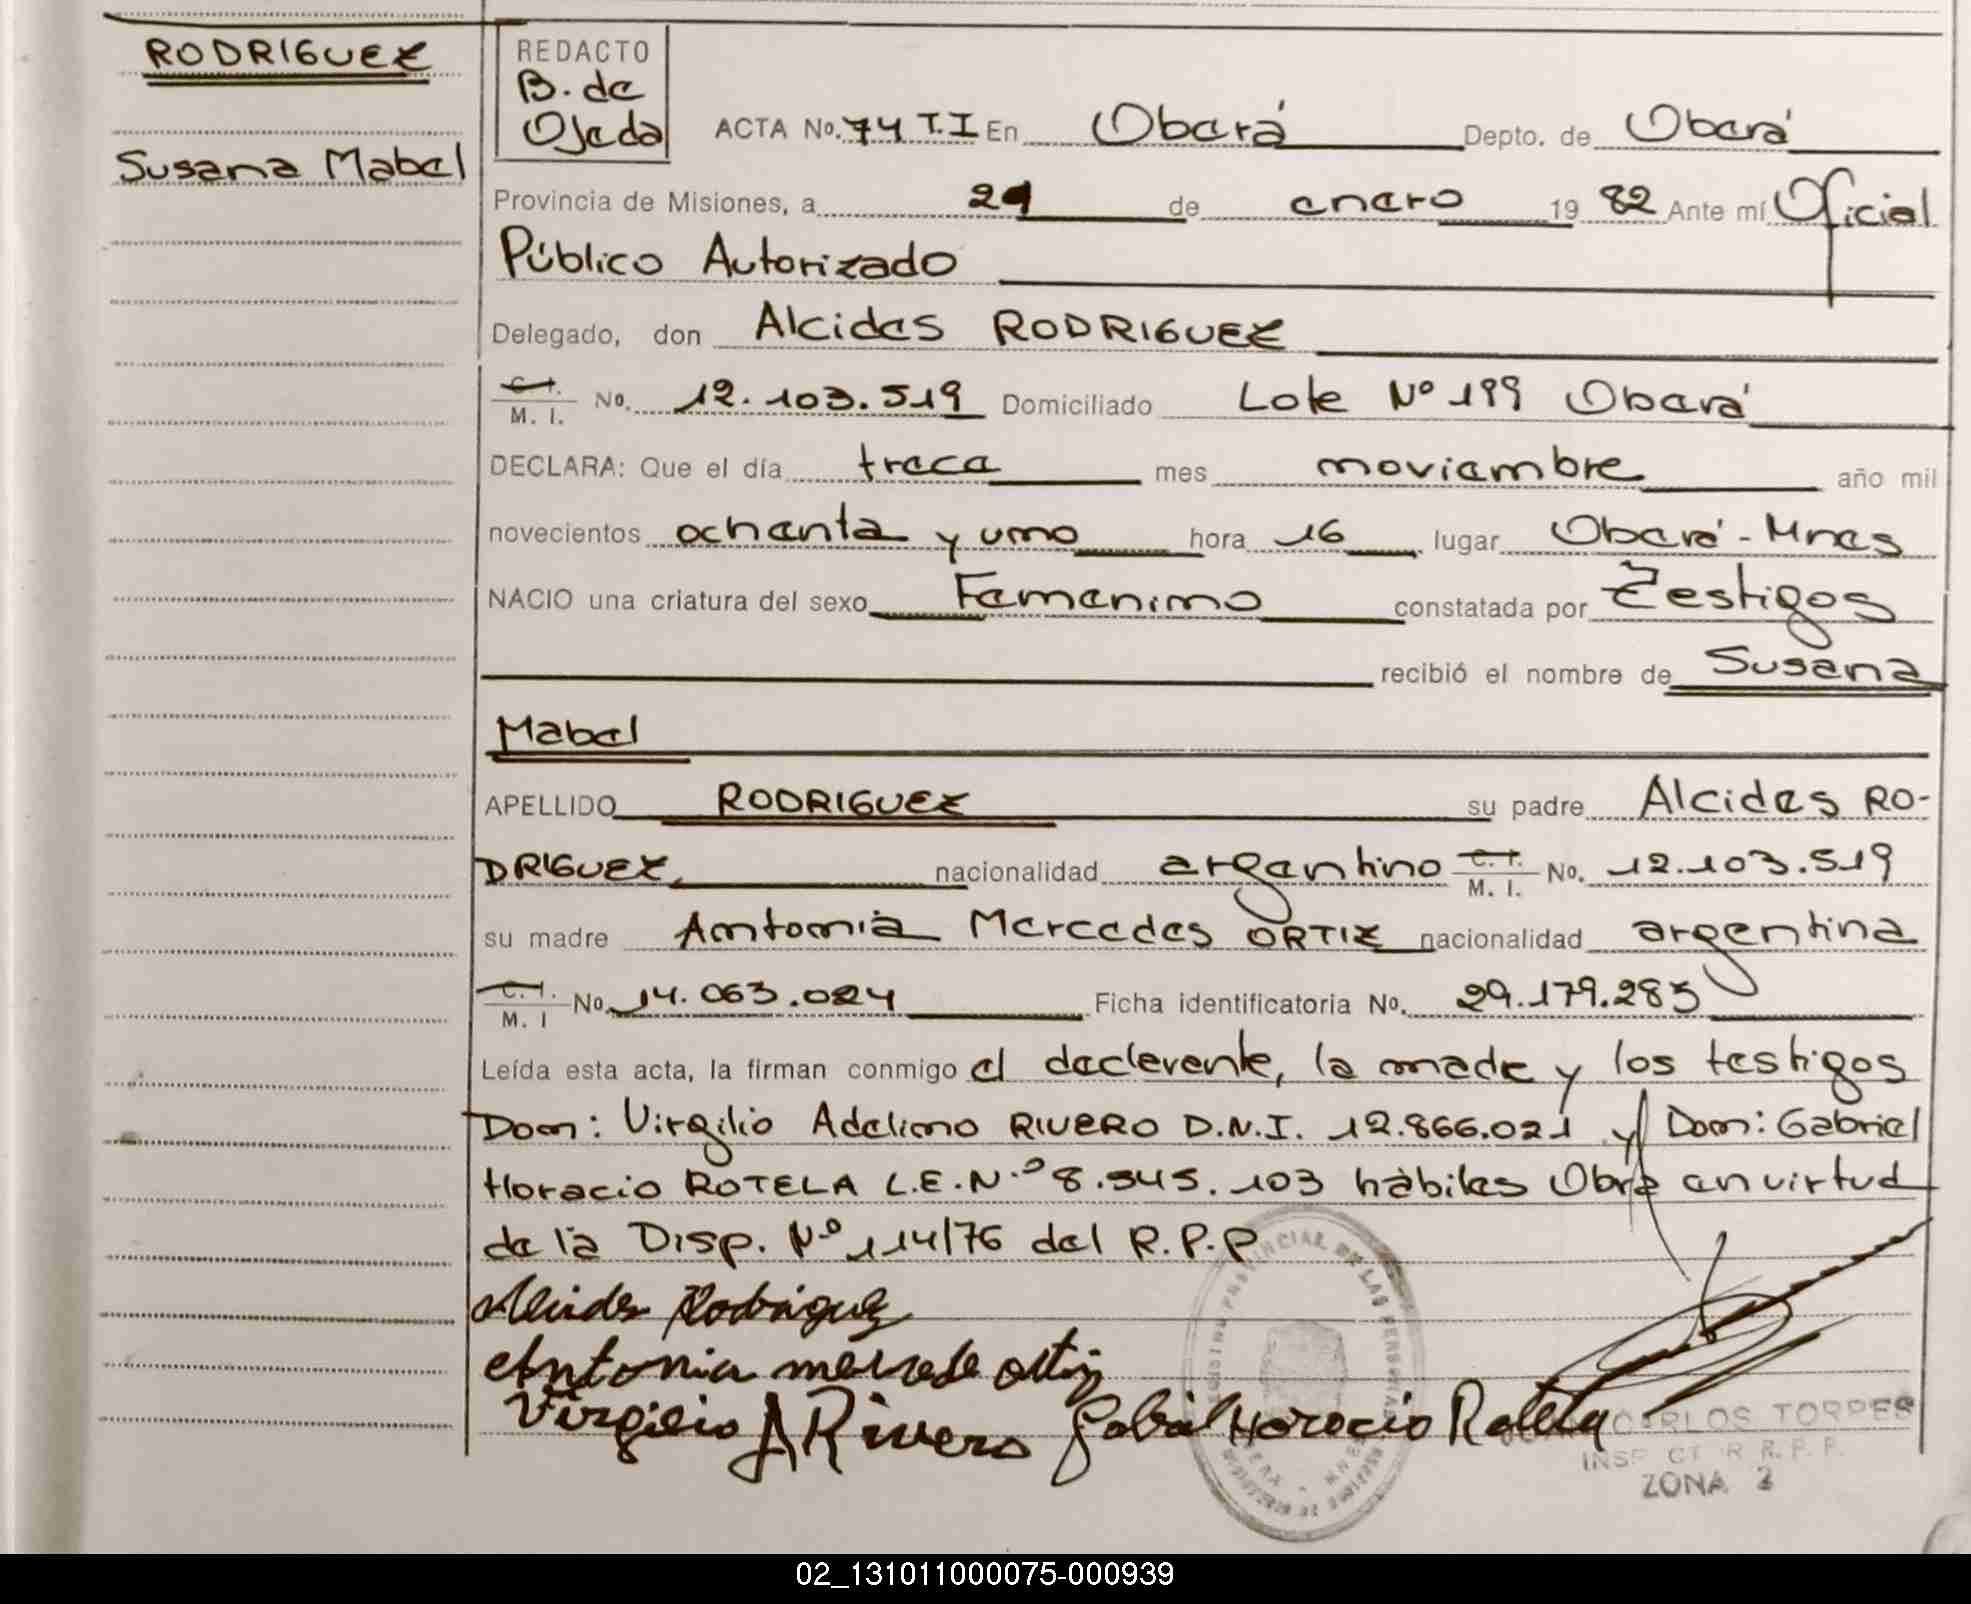 RODRIGUEZ
Susana Mabel
REDACTO
B. de
Ojeda
ACTA No. 74 T.I En Oberá Depto. de Oberá
Provincia de Misiones, a de enero 19 82 Ante mí Oficial
Público Autorizado
Delegado, don Alcides RODRIGUEZ
C. I. M. I. No. 12.103.519 Domiciliado Lote Nº 199 Oberá
DECLARA: Que el día trece mes noviembre año mil
novecientos ochenta y uno hora 16 lugar Oberá - Mnes
NACIO una criatura del sexo Femenino constatada por Testigos
recibió el nombre de Susana
Mabel
APELLIDO RODRIGUEZ su padre Alcides RO-
DRIGUEZ nacionalidad argentino C. I. M. I. No. 12.103.519
su madre Antonia Mercedes ORTIZ nacionalidad argentina
C. I. M. I No. 14.063.024 Ficha identificatoria No. 29.179.283
Leída esta acta, la firman conmigo el declarante, la madre y los testigos
Don: Virgilio Adelino RIVERO D.N.I. 12.866.021 y Don: Gabriel
Horacio ROTELA L.E.N.º 8.545.103 hábiles Obra en virtud
de la Disp. Nº 114/76 del R.P.P
Alcides Rodriguez
Antonia mercede ortiz
Virgilio A Rivero Gabriel Horacio Rotela
CARLOS TORRES
R.P.P.
ZONA 2
02_131011000075-000939